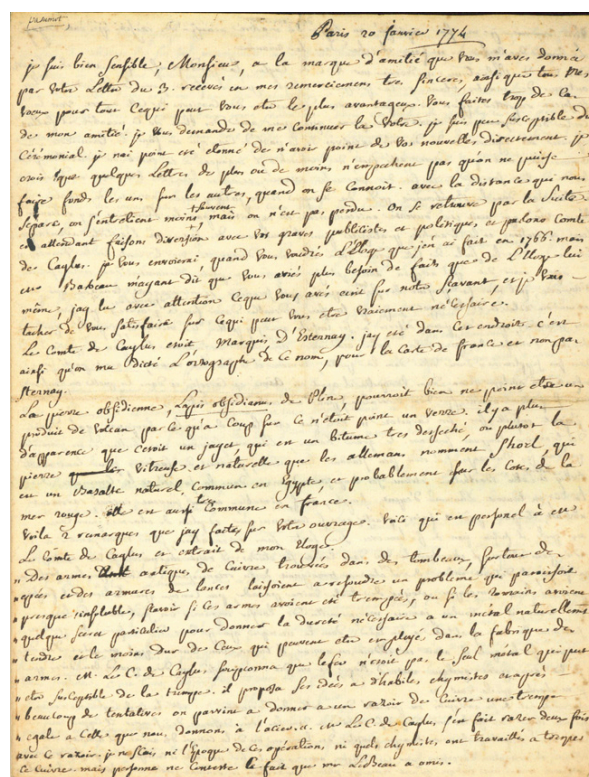 Paris 20 janvier 1774
je suis bien sensible, Monsieur, a la marque d'amitié que vous m'aves donné
par votre Lettre du 3. recevés en mes remerciemens tres sinceres, ainsi que tous mes
vœux pour tout ce qui peut vous etre le plus avantageux. vous faites trop de cas
de mon amitié. je vous demande de me continuer la votre. je suis peu susceptible de
Cérémonial. je nai point eté étonné de n'avoir point de vos nouvelles directement. je
crois que quelques Lettres de plus ou de moins n'empechent pas qu'on ne puisse
faire fonds les uns sur les autres, quand on se connoit. avec la distance qui nous
separe, on s'entretient moins souvent, mais on n'est pas perdu. on se retrouve par la suite
en attendant faisons diversion avec vos graves publicistes et politiques, et parlons Comte
de Caylus. je vous envoierai, quand vous voudrés L'Eloge que jen ai fait en 1766. mais
Mr Babeau mayant dit que vous aviés plus besoin de faits que de L'Eloge lui
même, jay lu avec attention ce que vous avés ecrit sur notre sçavant, et je vais
tacher de vous satisfaire sur ce qui peut vous etre vraiement nécessaire.
Le Comte de Caylus etoit Marquis D'Esternay. jay eté dans cet endroit. c'est
ainsi qu'on ma dicté L'ortograph de ce nom, pour la Carte de france et non pas
Sternay.
La pierre obsidienne, Lapis obsidianus de Pline, pourroit bien ne point etre un
produit de volcan par ce qu'a coup sur ce n'etoit point un verre. il y a plus
d'apparence que c'etoit un jayet, qui est un bitume tres desseché, ou plustot la
pierre vitreuse et naturelle que les allemans nomment Shorl, qui
est un Basalte naturel, Commun en Egypte et probablement sur les Cotes de la
mer rouge. elle est aussi tres Commune en france.
Voila 2 remarques que jay faites sur votre ouvrage. Voici qui est personel à Mr
Le Comte de Caylus et extrait de mon Eloge.
" Des armes antiques de Cuivre trouvées dans des tombeaux, surtout des
" epées et des armures de lances laissoient a resoudre un problème qui paroissoit
" presque insoluble, sçavoir si ces armes avoient eté trempées, ou si les Romains avoient
" quelque secret particulier pour donner la dureté nécessaire a un metal naturellement
" tendre et le moins dur de Ceux qui peuvent etre employé dans la fabrique des
" armes. Mr. Le C. de Caylus soupçonna que le fer n'etoit pas le seul metal qui put
" etre susceptible de la trempe. il proposa ses idées a d'habiles chymistes et après
" beaucoup de tentatives on parvint a donner a un razoir de Cuivre une trempe
" egale a Celle que nous donnons à l'acier. Mr Le C. de Caylus s'en fait razer deux fois
avec ce razoir. je ne sçais ni l'Epoque de ces opérations, ni quels chymistes ont travaillés a tremper
ce Cuivre. mais personne ne Conteste le fait que Mr LeBeau a omis.